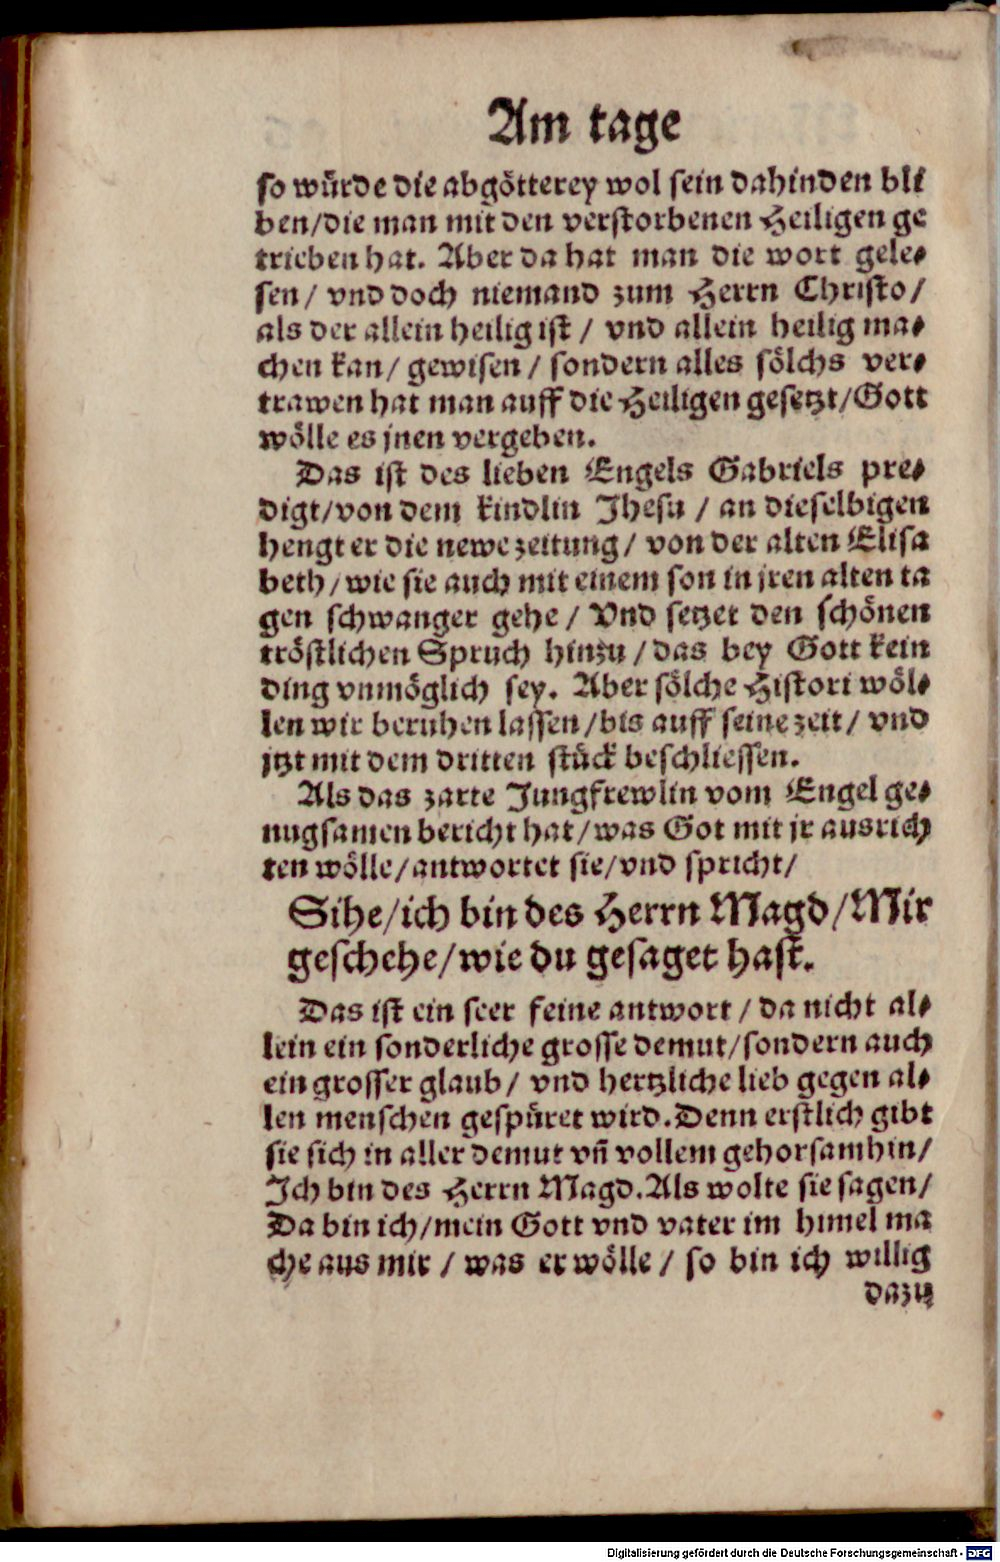 Am tage
so würde die abgötterey wol sein dahinden bli
ben/die man mit den verstorbenen Heiligen ge
trieben hat. Aber da hat man die wort gele⸗
sen/ vnd doch niemand zum Herrn Christo/
als der allein heilig ist / vnd allein heilig ma⸗
chen kan/ gewisen / sondern alles sölchs ver⸗
trawen hat man auff die Heiligen gesetzt/Gott
wölle es jnen vergeben.
Das ist des lieben Engels Gabriels pre⸗
digt/von dem kindlin Jhesu / an dieselbigen
hengt er die newe zeitung/ von der alten Elisa
beth/wie sie auch mit einem son in jren alten ta
gen schwanger gehe / Vnd setzet den schönen
tröstlichen Spruch hinzu / das bey Gott kein
ding vnmöglich sey. Aber sölche Histori wöl⸗
len wir beruhen lassen/bis auff seine zeit/ vnd
jtzt mit dem dritten stück beschliessen.
Als das zarte Jungfrewlin vom Engel ge⸗
nugsamen bericht hat/was Got mit jr ausrich
ten wölle/antwortet sie/vnd spricht/
Sihe/ich bin des Herrn Magd/Mir
geschehe/wie du gesaget hast.
Das ist ein seer feine antwort / da nicht al⸗
lein ein sonderliche grosse demut/sondern auch
ein grosser glaub/ vnd hertzliche lieb gegen al⸗
len menschen gespüret wird. Denn erstlich gibt
sie sich in aller demut vñ vollem gehorsam hin/
Ich bin des Herrn Magd. Als wolte sie sagen/
Da bin ich/mein Gott vnd vater im himel ma
che aus mir / was er wölle / so bin ich willig
dazu
Digitalisierung gefördert durch die Deutsche Forschungsgemeinschaft - DFG